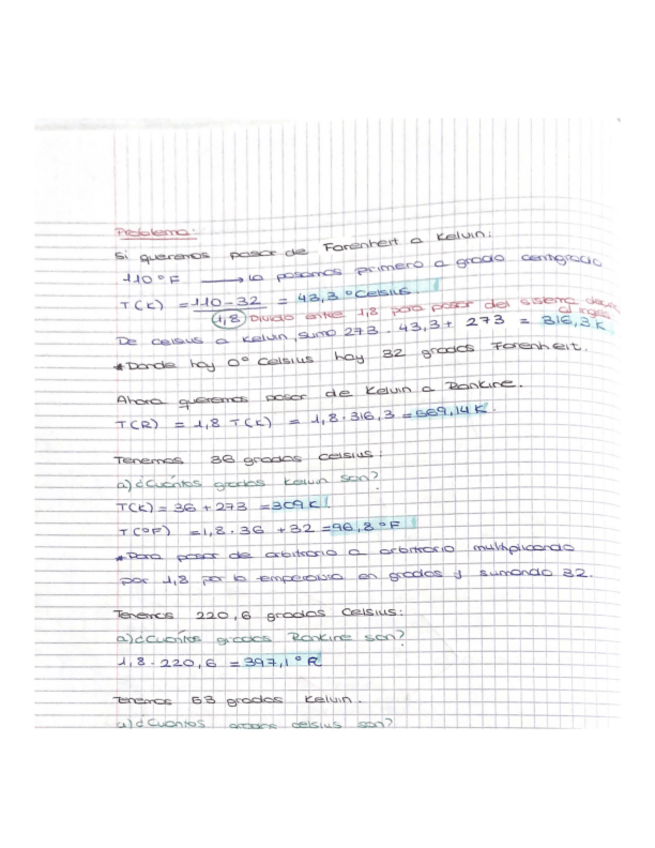 Problema:
Si queremos pasar de Farenheit a Kelvin:
110°F → lo pasamos primero a grado centigrado
T(K) = 110-32 / 1,8 = 43,3 °Celsius
Divido entre 1,8 para pasar del sistema al ingles
De celsius a Kelvin, sumo 273. 43,3 + 273 = 316,3 K
* Donde hay 0° Celsius hay 32 grados Farenheit.
Ahora queremos pasar de Kelvin a Rankine.
T(R) = 1,8 T(K) = 1,8 · 316,3 = 569,14 K.
Tenemos 36 grados celsius:
a) ¿Cuántos grados Kelvin son?
T(K) = 36 + 273 = 309 K
T(°F) = 1,8 · 36 + 32 = 96,8 °F
* Para pasar de arbitrario a arbitrario multiplicando
por 1,8 por la temperatura en grados y sumando 32.
Tenemos 220,6 grados Celsius:
a) ¿Cuántos grados Rankine son?
1,8 · 220,6 = 397,1 °R
Tenemos 53 grados Kelvin.
a) ¿Cuántos grados celsius son?